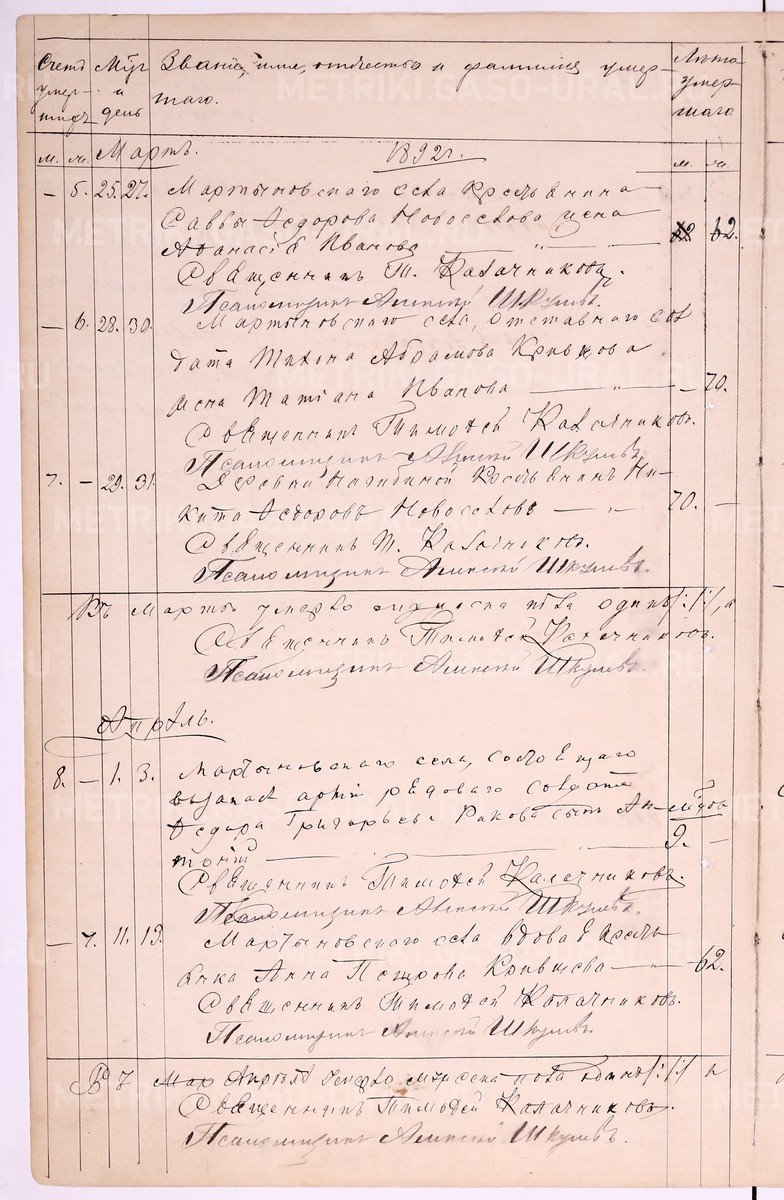 Счетъ умер-шихъ
Мѣс. и день
Званіе, имя, отчество и фамилія умер-
шаго.
Лѣта умер-шаго
м. ж. Мартъ. 1892 г. м. ж.
– 5. 25. 27. Мартыновскаго села крестьянина
Саввы Ѳедорова Новоселова жена
Аѳанасія Иванова – „ – 62.
Священникъ Т. Калачниковъ.
Псаломщикъ Алексѣй Шкулевъ.
– 6. 28. 30. Мартыновскаго села, отставнаго сол
дата Тихона Абрамова Кривцова
жена Татіана Иванова – „ – 70.
Священникъ Тимоѳей Калачниковъ.
Псаломщикъ Алексѣй Шкулевъ.
7. – 29. 31. Деревни Нагибиной крестьянинъ Ни-
кита Ѳедоровъ Новоселовъ – „ – 70. –
Священникъ Т. Калачниковъ.
Псаломщикъ Алексѣй Шкулевъ.
Въ Мартѣ умерло мужеска пола одинъ /:1:/, а
Священникъ Тимоѳей Калачниковъ.
Псаломщикъ Алексѣй Шкулевъ.
Апрѣль.
8. – 1. 3. Мартыновскаго села, состоящаго
въ запасѣ арміи рядоваго солдата
Ѳедора Григорьева Ракова сынъ Ан-
тоній – „ – 9. –
Священникъ Тимоѳей Калачниковъ.
Псаломщикъ Алексѣй Шкулевъ.
– 7. 11. 13. Мартыновскаго села вдова кресть
янка Анна Петрова Кривцева – 62.
Священникъ Тимоѳей Калачниковъ.
Псаломщикъ Алексѣй Шкулевъ.
Въ Апрѣлѣ умерло мужеска пола одинъ /:1:/ а
Священникъ Тимоѳей Калачниковъ.
Псаломщикъ Алексѣй Шкулевъ.